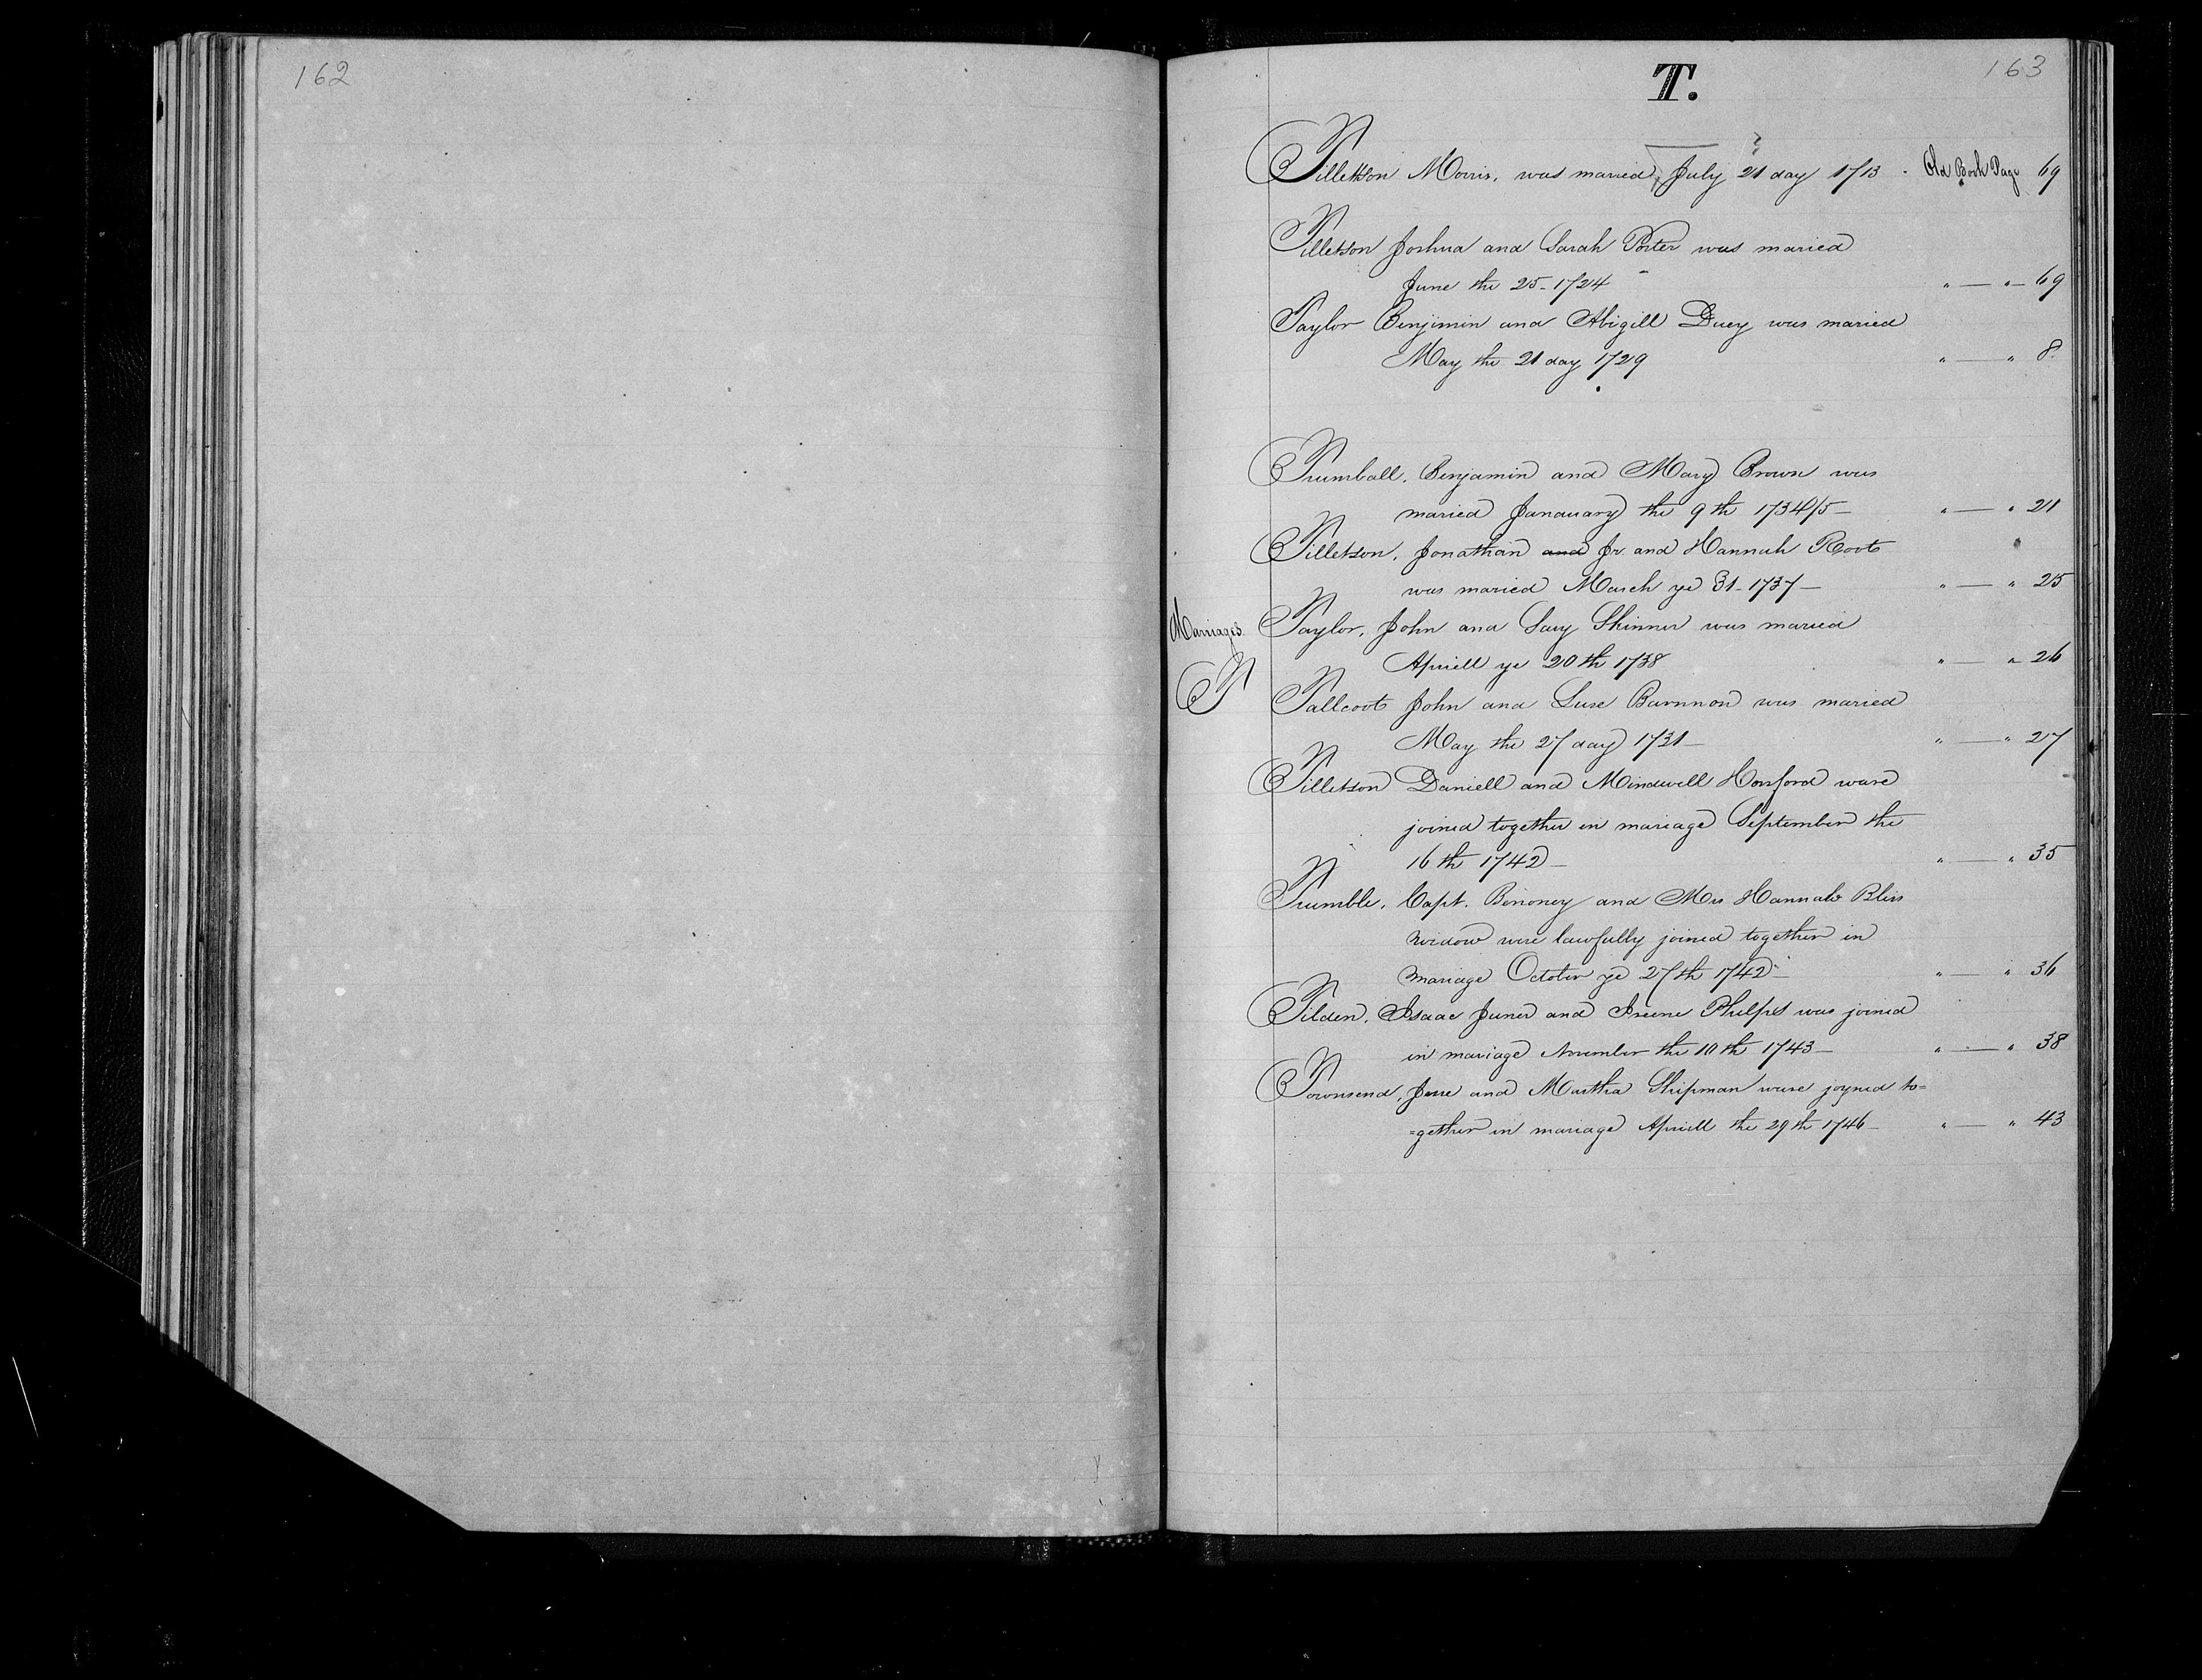 162
T.
163
Tilletson Morris, was maried, July 21 day 1713 . Old Book Page 69
?
Tilletson Joshua and Sarah Porter was maried
June the 25 - 1724 " — " — 69
Taylor Benjimin and Abigill Duey was maried
May the 21 day 1729 " — " 8.
Trumball, Benjamin and Mary Brown was
maried Januuary the 9th 1734/5 — " — " 21
Tilletson, Jonathan and Jr. and Hannah Roots
was maried March ye 31 - 1737 — " — " 25
Marriages.
Taylor, John and Sary Skinner was maried
Apriell ye 20th 1738 " — " 26
T
Tallcoot John and Luse Barnnon was maried
May the 27 day 1731 — " — " 27
Tilletson Daniell and Mindwell Horsford ware
joined together in mariage September the
16th 1742 — " — " 35
Trumble, Capt. Benoney and Mrs Hannah Bliss
widow were lawfully joined together in
mariage October ye 27th 1742 — " — " 36
Tilden, Isaac Juner and Ireene Phelps was joined
in mariage November the 10th 1743 — " — " 38
Townsend, Jesse and Martha Shipman ware joyned to=
=gether in mariage Apriell the 29th 1746 — " — " 43